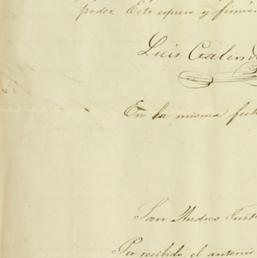 poder. Este espero y firmó
Luis Galindo
En la misma fech
San Andres Tuxt
Por recibido el anterio